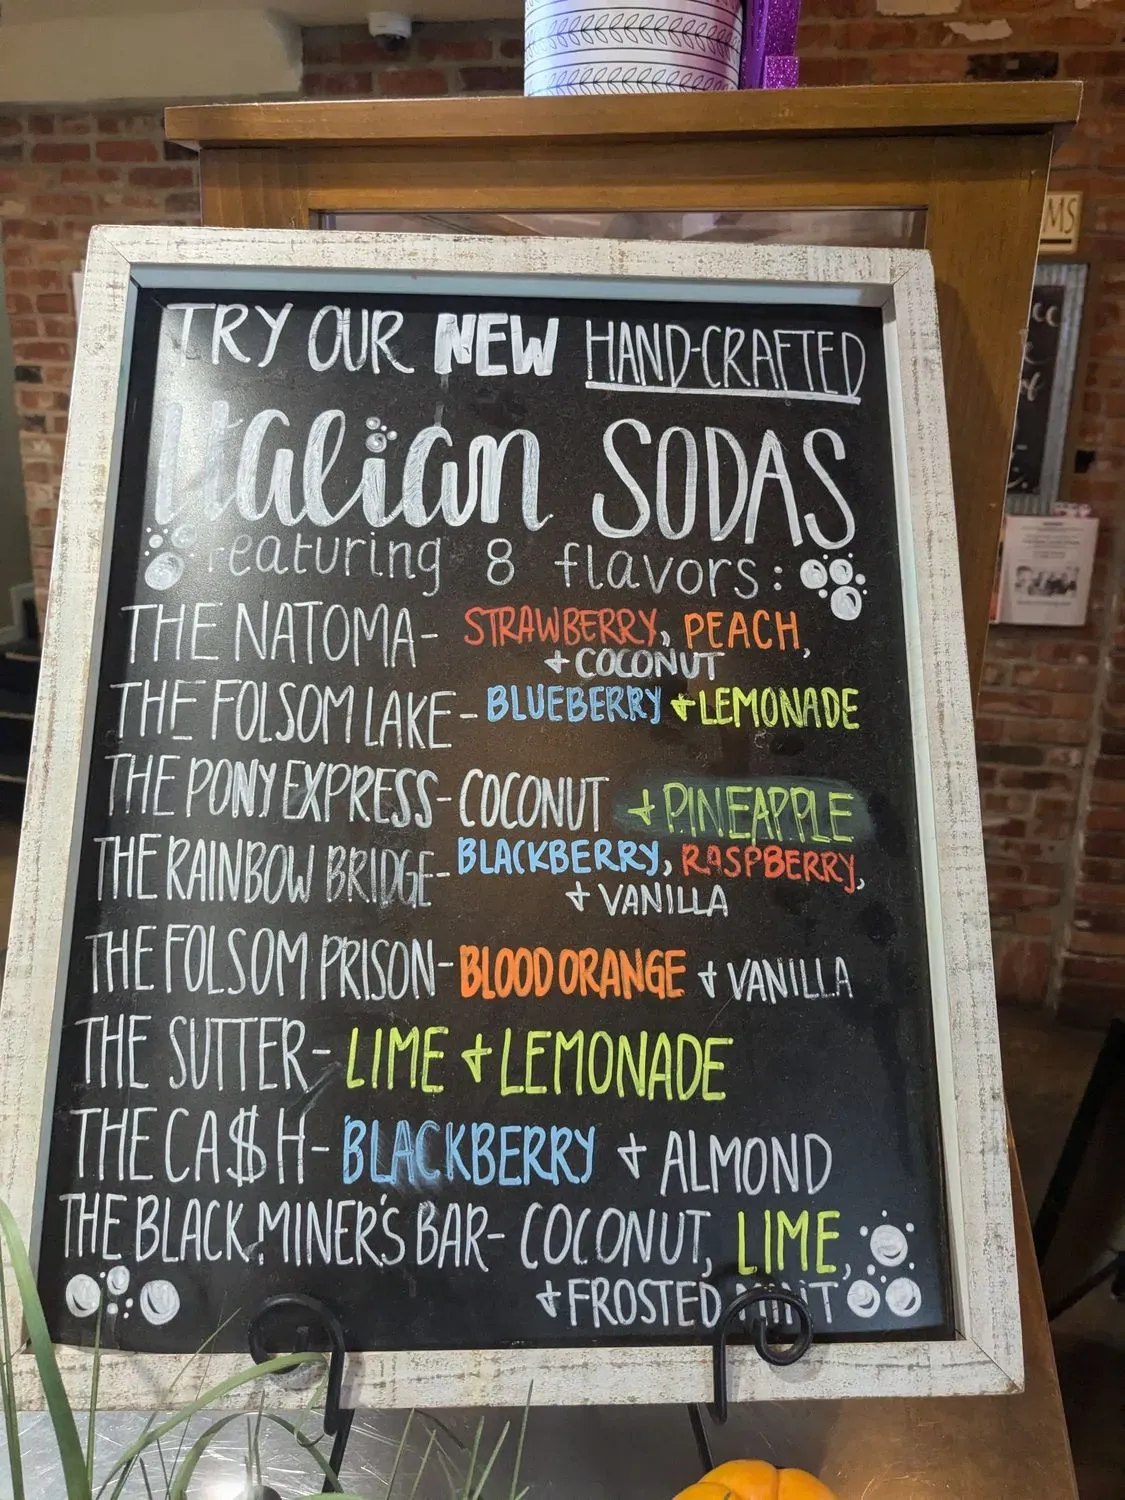 TRY OUR NEW HAND-CRAFTED
Italian SODAS
featuring 8 flavors:
THE NATOMA- STRAWBERRY, PEACH,
+ COCONUT
THE FOLSOM LAKE- BLUEBERRY + LEMONADE
THE PONY EXPRESS- COCONUT + PINEAPPLE
THE RAINBOW BRIDGE- BLACKBERRY, RASPBERRY,
+ VANILLA
THE FOLSOM PRISON- BLOOD ORANGE + VANILLA
THE SUTTER- LIME + LEMONADE
THE CA$H- BLACKBERRY + ALMOND
THE BLACK MINER'S BAR- COCONUT, LIME,
+ FROSTED MINT